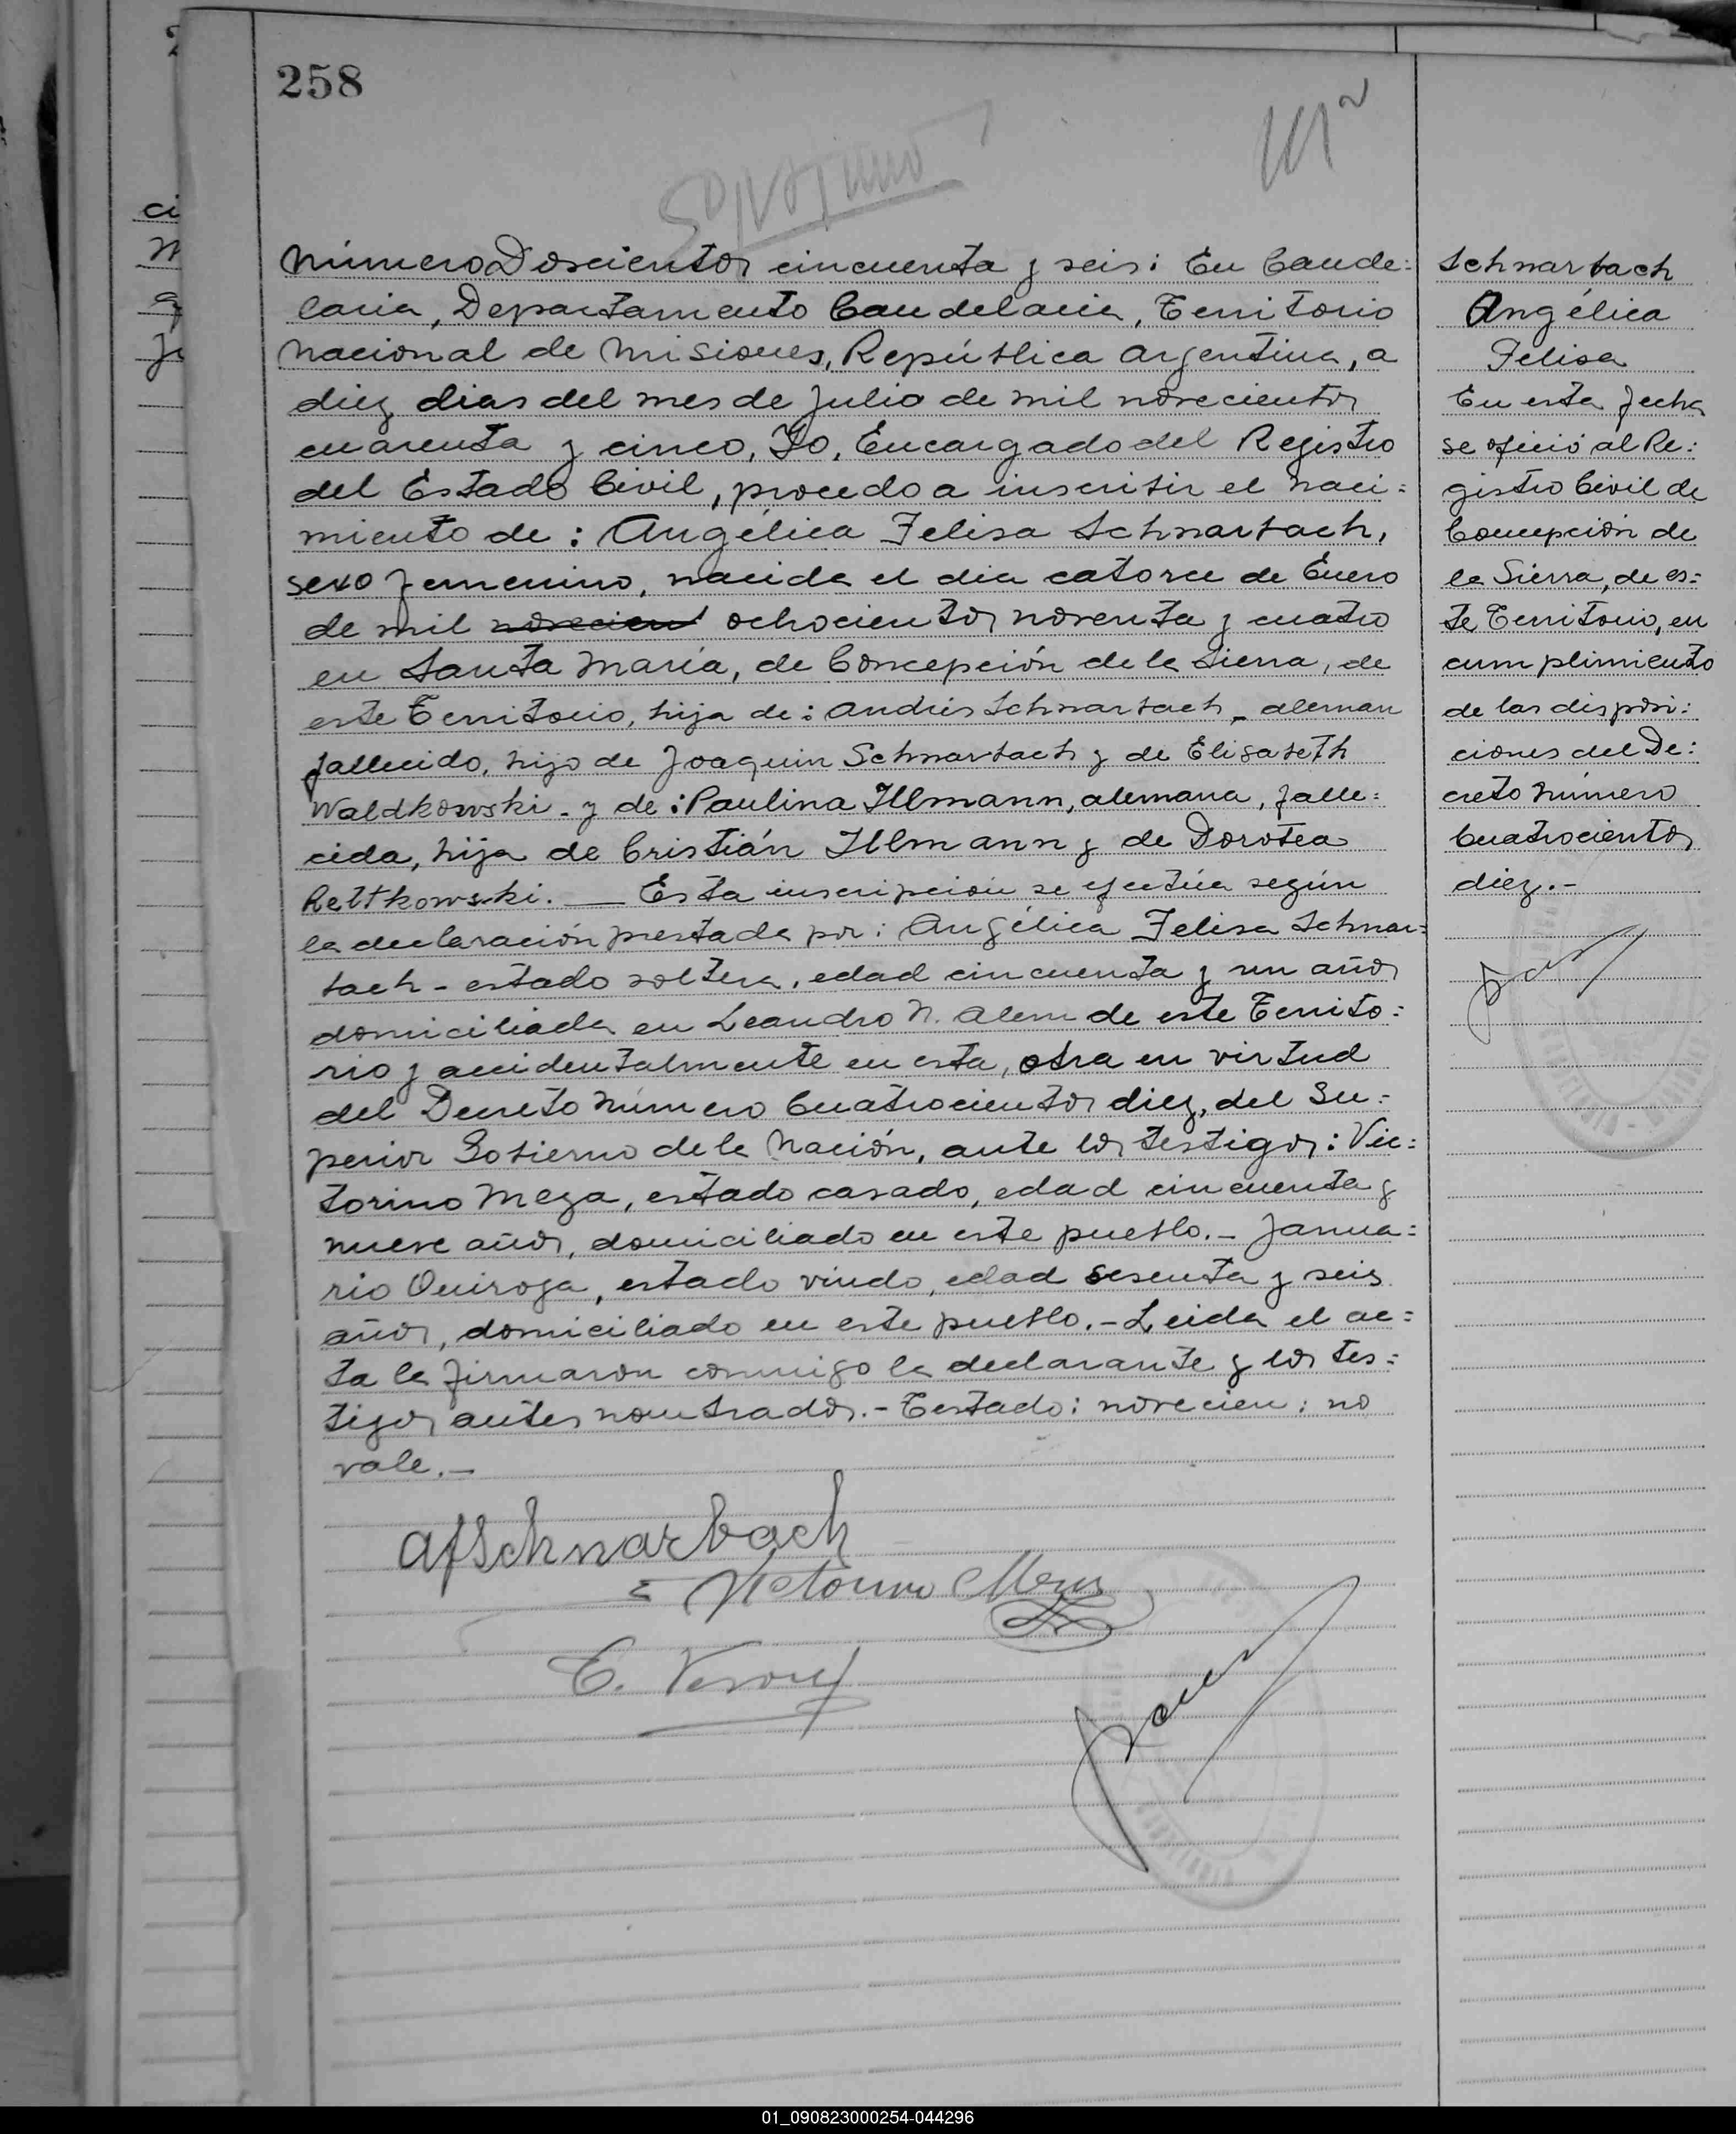 258
Número Doscientos cincuenta y seis: En Cande=
laria, Departamento Candelaria, Territorio
Nacional de Misiones, República Argentina, a
diez dias del mes de Julio de mil novecientos
cuarenta y cinco, Yo, Encargado del Registro
del Estado Civil, procedo a inscribir el naci=
miento de: Angélica Felisa Schnarbach,
sexo femenino, nacida el dia catorce de Enero
de mil novecien ochocientos noventa y cuatro
en Santa María, de Concepción de la Sierra, de
este Territorio, hija de: Andrés Schnarbach - aleman
fallecido, hijo de Joaquin Schnarbach y de Elisabeth
Waldkowski - y de: Paulina Illmann, alemana, falle=
cida, hija de Cristián Illmann y de Dorotea
Rettkowski. — Esta inscripción se efectúa según
la declaración prestada por: Angélica Felisa Schnar=
bach - estado soltera, edad cincuenta y un años
domiciliada en Leandro N. Alem de este Territo=
rio y accidentalmente en esta, obra en virtud
del Decreto Número Cuatrocientos diez, del Su=
perior Gobierno de la Nación, ante los testigos: Vic=
torino Meza, estado casado, edad cincuenta y
nueve años, domiciliado en este pueblo. - Janua=
rio Quiroga, estado viudo, edad sesenta y seis
años, domiciliado en este pueblo. - Leida el ac=
ta la firmaron conmigo la declarante y los tes=
tigos antes nombrados. - Testado: novecien: no
vale. -
AFSchnarbach
Victorino Meza
Schnarbach
Angélica
Felisa
En esta fecha
se ofició al Re=
gistro Civil de
Concepción de
la Sierra, de es=
te Territorio, en
cumplimiento
de las disposi=
ciones del De=
creto Número
Cuatrocientos
diez. -
01_090823000254-044296